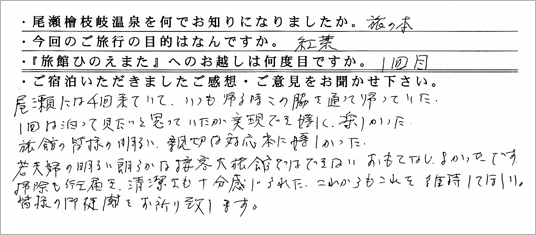 ・尾瀬檜枝岐温泉を何でお知りになりましたか。 旅の本
・今回のご旅行の目的はなんですか。 紅葉
・『旅館ひのえまた』へのお越しは何度目ですか。 1回目
・ご宿泊いただきましたご感想・ご意見をお聞かせ下さい。
尾瀬には4回来ていて、いつも帰る時この脇を通って帰っていた。
1回は泊って見たいと思っていたが実現でき嬉しく、楽しかった。
旅館の皆様の明るい、親切な対応本に嬉しかった。
若夫婦の明るい朗らかな接客大旅館ではできない おもてなし、よかったです。
掃除も行届き、清潔さも十分感じられた、これからもこれを維持してほしい。
皆様の御健闘をお祈り致します。